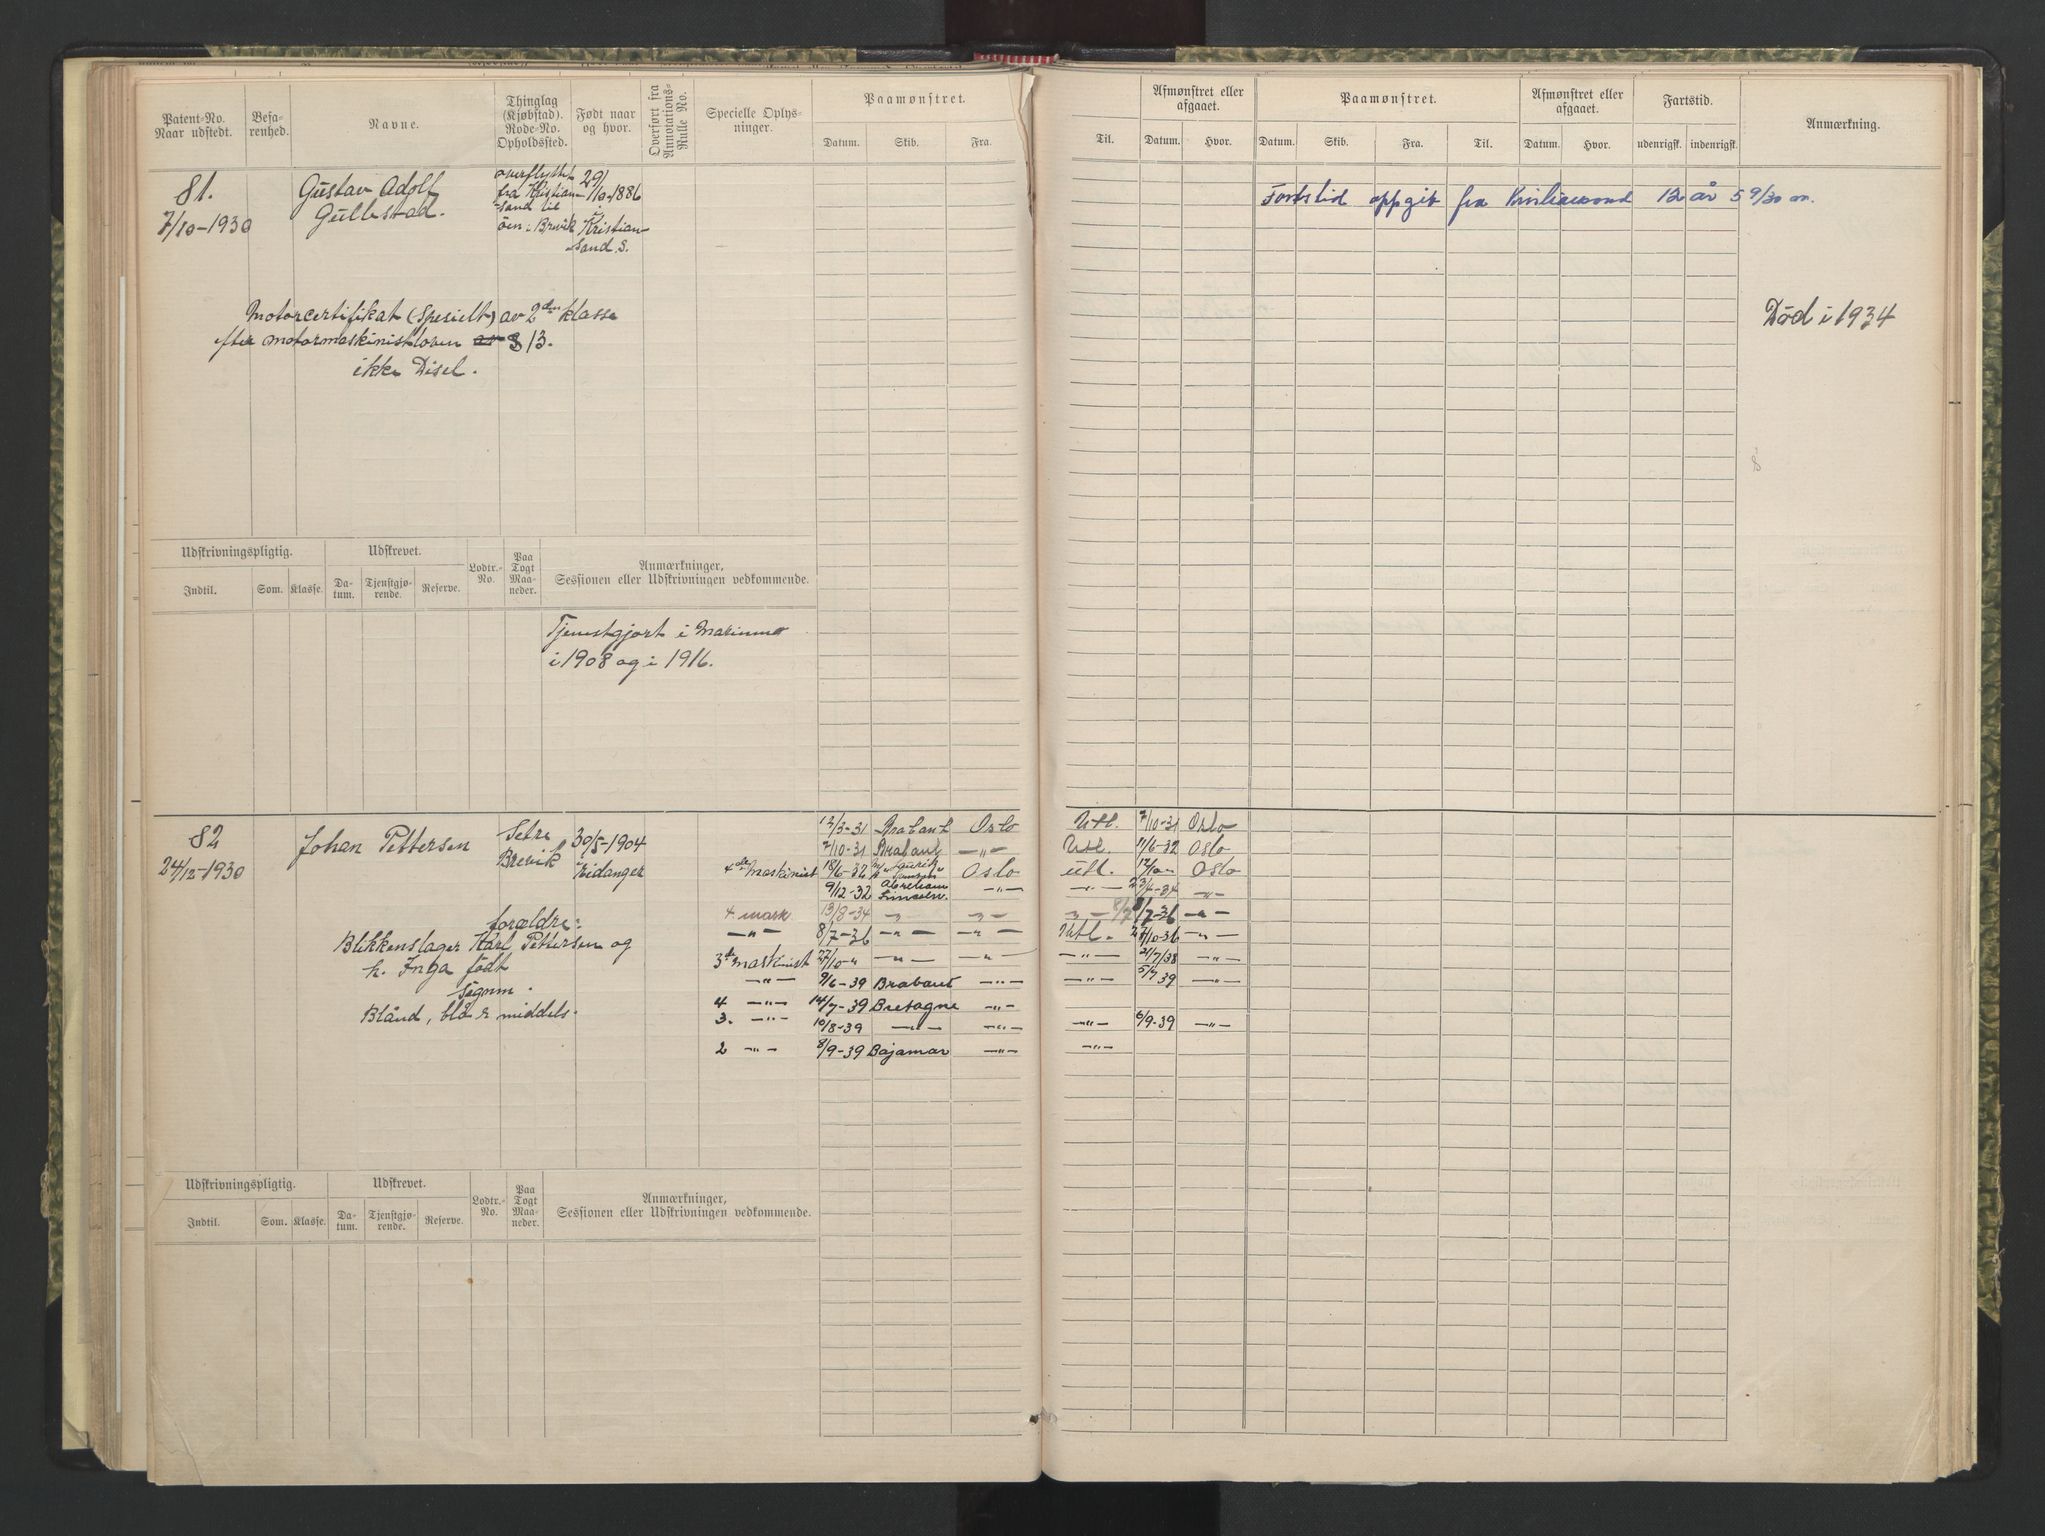 Patent-No. Naar udstedt.
Befarenhed.
Navne.
Thinglag (Kjøbstad). Rode-No. Opholdssted.
Født naar og hvor.
Overført fra Annotations-Rulle No.
Specielle Oplysninger.
Paamønstret.
Datum. Skib. Fra.
Til.
Afmønstret eller afgaaet.
Datum. Hvor.
Paamønstret.
Datum. Skib. Fra. Til.
Afmønstret eller afgaaet.
Datum. Hvor.
Fartstid.
udenrigsk. indenrigsk.
Anmærkning.
81.
7/10-1930
Gustav Adolf
Gullestad.
overflyttet
fra Kristian-
sand til
öen i Brevik
29/10-1886
Kristian-
sand S.
Fartstid oppgit fra Kristiansand 12 år 5 9/30 m.
Motorcertifikat (Spesielt) av 2den klasse
efter motormaskinistloven § 13.
ikke Disel.
Död i 1934
Udskrivningspligtig.
Indtil. Som. Klasse.
Udskrevet.
Datum. Tjenstgjørende. Reserve.
Lodtr.-No.
Paa Togt Maaneder.
Anmærkninger,
Sessionen eller Udskrivningen vedkommende.
Tjenestgjort i Marinen
i 1908 og i 1916.
82
24/12-1930
Johan Pettersen
Setre
Brevik
30/5-1904
Eidanger
12/3-31 Brabant Oslo Utl. 7/10-31 Oslo
7/10-31 Brabant -"- Utl. 11/6-32 Oslo
4de maskinist 18/6-32 Oslo utl. Oslo
9/12-32 Abraham -"- -"- -"-
4 mask 13/8-34 -"- -"- -"- 8/7-36 -"-
-"- 8/7-36 -"- -"- Utl. 27/10-36 -"-
3de maskinist 27/10-" -"- -"- -"- 21/7/38 -"-
-"- 9/6-39 Brabant -"- -"- 5/7 39 -"-
4 -"- 14/7-39 Bretagne -"-
3. -"- 10/8-39 -"- -"- -"- 6/9-39 -"-
2 -"- 8/9-39 Bajamar -"- -"-
forældre:
Blikkenslager Karl Pettersen og
h. Inga født
Blånd, blå & middels.
Udskrivningspligtig.
Indtil. Som. Klasse.
Udskrevet.
Datum. Tjenstgjørende. Reserve.
Lodtr.-No.
Paa Togt Maaneder.
Anmærkninger,
Sessionen eller Udskrivningen vedkommende.